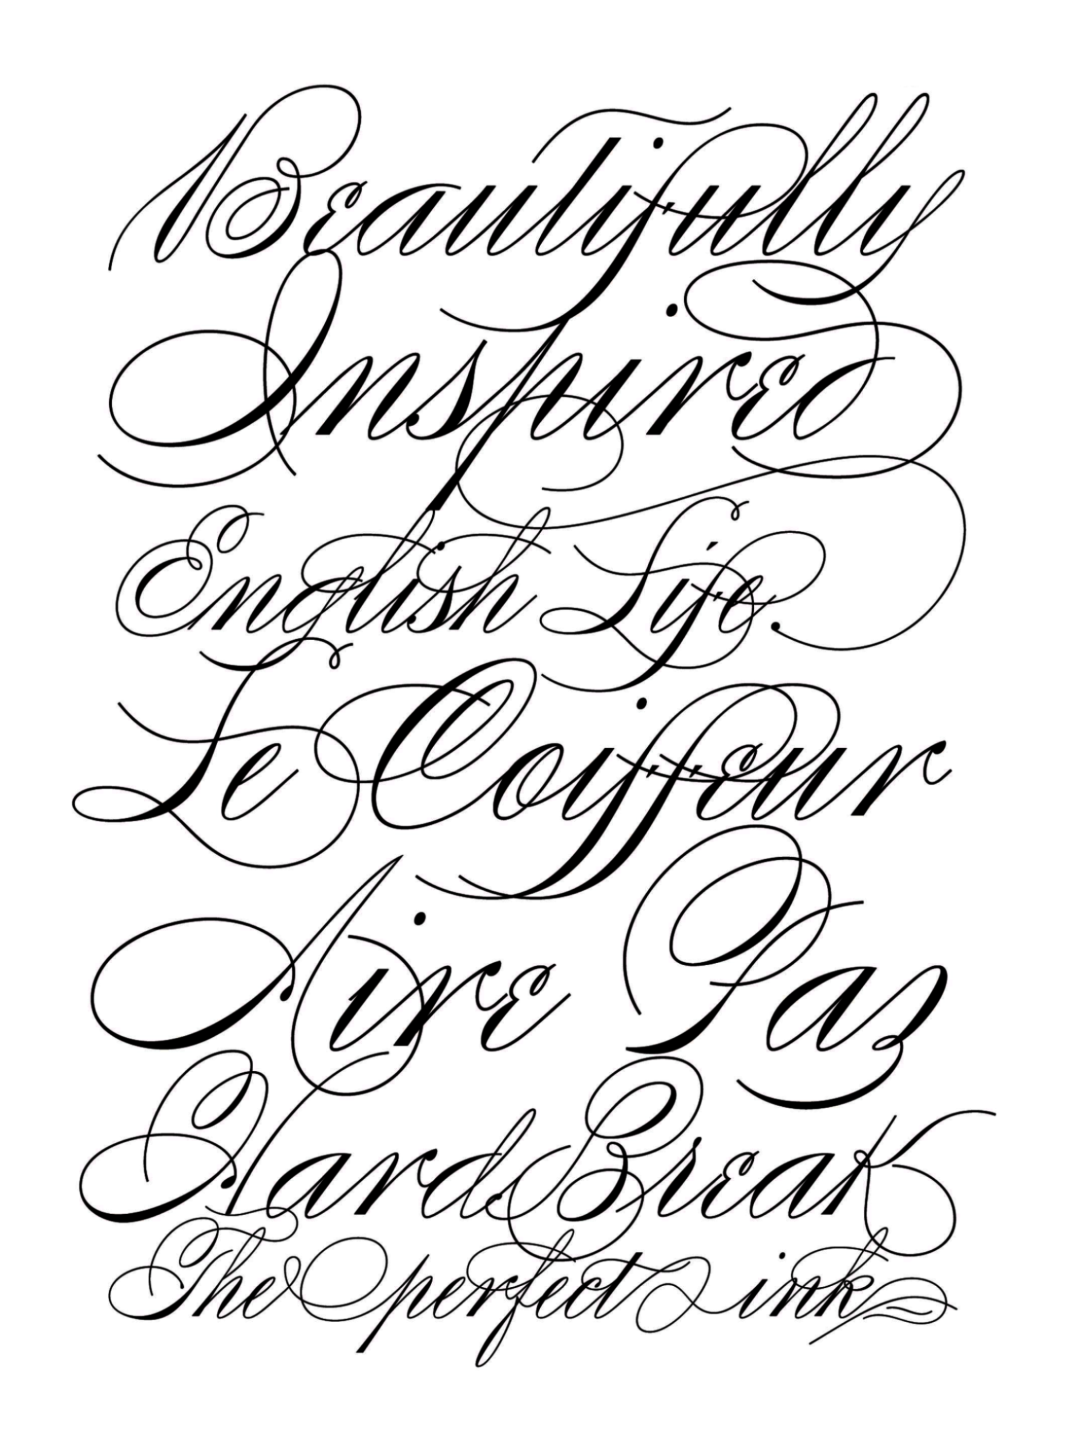 Beautifully
Inspired
English Life.
Le Coiffeur
Aire Paz
Hard Break
The perfect ink